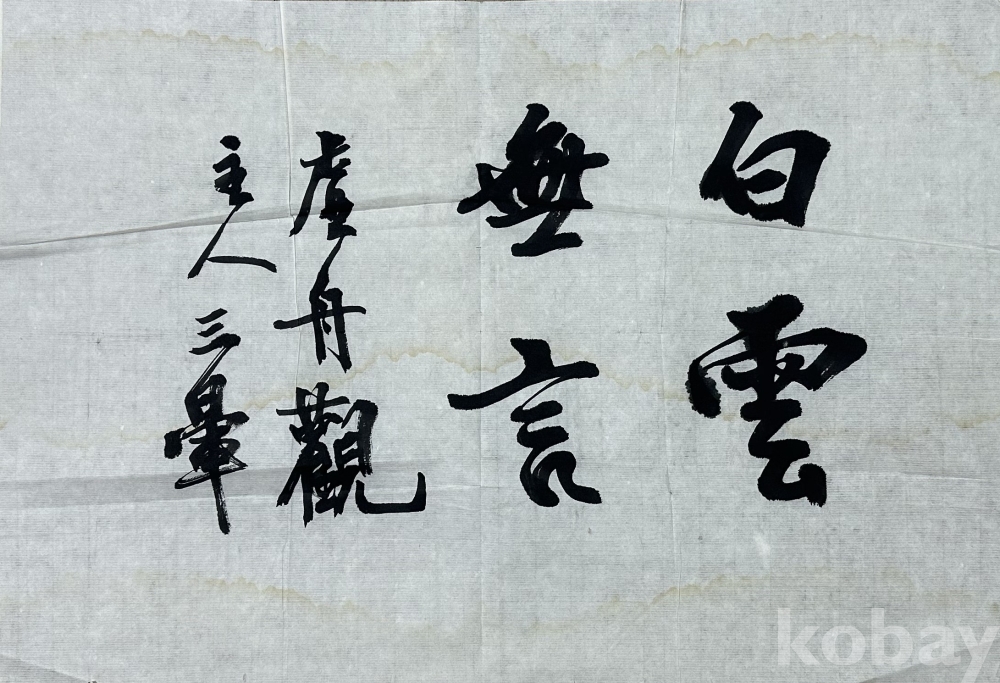 白雲
無言
虛舟觀
主人 三畢
kobay